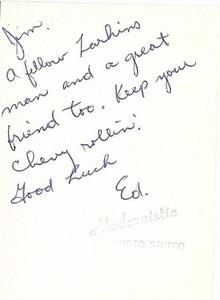 Jim.
A fellow Larkins
man and a great
friend too. Keep your
Chevy rollin'.
Good Luck
Ed.
Modernistic
PHOTO STUDIO